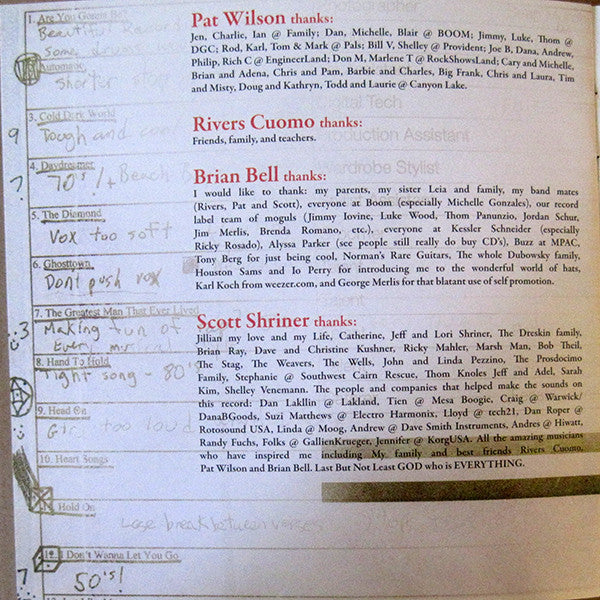 Pat Wilson thanks:
Jen, Charlie, Ian @ Family; Dan, Michelle, Blair @ BOOM; Jimmy, Luke, Thom @
DGC; Rod, Karl, Tom & Mark @ Pals; Bill V, Shelley @ Provident; Joe B, Dana, Andrew,
Philip, Rich C @ EngineerLand; Don M, Marlene T @ RockShowsLand; Cary and Michelle,
Brian and Adena, Chris and Pam, Barbie and Charles, Big Frank, Chris and Laura, Tim
and Misty, Doug and Kathryn, Todd and Laurie @ Canyon Lake.
Rivers Cuomo thanks:
Friends, family, and teachers.
Brian Bell thanks:
I would like to thank: my parents, my sister Leia and family, my band mates
(Rivers, Pat and Scott), everyone at Boom (especially Michelle Gonzales), our record
label team of moguls (Jimmy Iovine, Luke Wood, Thom Panunzio, Jordan Schur,
Jim Merlis, Brenda Romano, etc.), everyone at Kessler Schneider (especially
Ricky Rosado), Alyssa Parker (see people still really do buy CD's), Buzz at MPAC,
Tony Berg for just being cool, Norman's Rare Guitars, The whole Dubowsky family,
Houston Sams and Io Perry for introducing me to the wonderful world of hats,
Karl Koch from weezer.com, and George Merlis for that blatant use of self promotion.
Scott Shriner thanks:
Jillian my love and my Life, Catherine, Jeff and Lori Shriner, The Dreskin family,
Brian Ray, Dave and Christine Kushner, Ricky Mahler, Marsh Man, Bob Theil,
The Stag, The Weavers, The Wells, John and Linda Pezzino, The Prosdocimo
Family, Stephanie @ Southwest Cairn Rescue, Thom Knoles Jeff and Adel, Sarah
Kim, Shelley Venemann. The people and companies that helped make the sounds on
this record: Dan Lakllin @ Lakland, Tien @ Mesa Boogie, Craig @ Warwick/
DanaBGoods, Suzi Matthews @ Electro Harmonix, Lloyd @ tech21, Dan Roper @
Rotosound USA, Linda @ Moog, Andrew @ Dave Smith Instruments, Andres @ Hiwatt,
Randy Fuchs, Folks @ GallienKrueger, Jennifer @ KorgUSA. All the amazing musicians
who have inspired me including My family and best friends Rivers Cuomo,
Pat Wilson and Brian Bell. Last But Not Least GOD who is EVERYTHING.
1. Are You
Beautiful
Some
Automatic
Shorter
3. Cold Dark World
9
Tough and
4. Daydreamer
?
70's / + Beach
5. The Diamond
Vox too soft
6. Ghosttown
Dont push vox
7. The Greatest Man That Ever Lived
3
Making fun of
Even musical
8. Hand To Hold
Tight song - 80's
9. Head On
too loud
10. Heart Songs
Hold On
Lose break between verses
12. I Don't Wanna Let You Go
7
50's!
Digital Tech
Production Assistant
Wardrobe Stylist